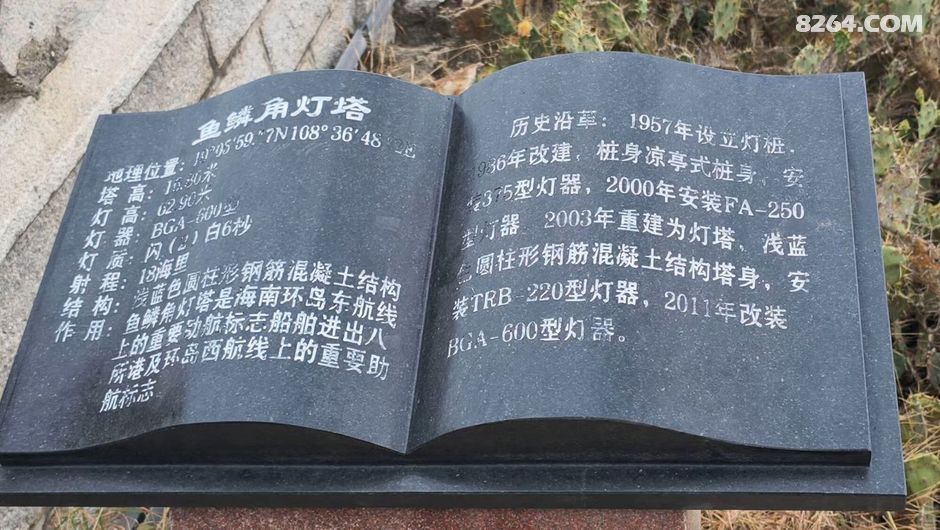 8264.COM
鱼鳞角灯塔
地理位置：19°05′59.″7N108°36′48.″2E
塔高：16.80米
灯高：62.90米
灯器：BGA-600型
灯质：闪(2)白6秒
射程：18海里
结构：浅蓝色圆柱形钢筋混凝土结构
作用：鱼鳞角灯塔是海南环岛东航线
上的重要动航标志船舶进出八
所港及环岛西航线上的重要助
航标志
历史沿革：1957年设立灯桩，
1986年改建，桩身凉亭式桩身，安
装375型灯器，2000年安装FA-250
型灯器。2003年重建为灯塔，浅蓝
色圆柱形钢筋混凝土结构塔身，安
装TRB-220型灯器，2011年改装
BGA-600型灯器。